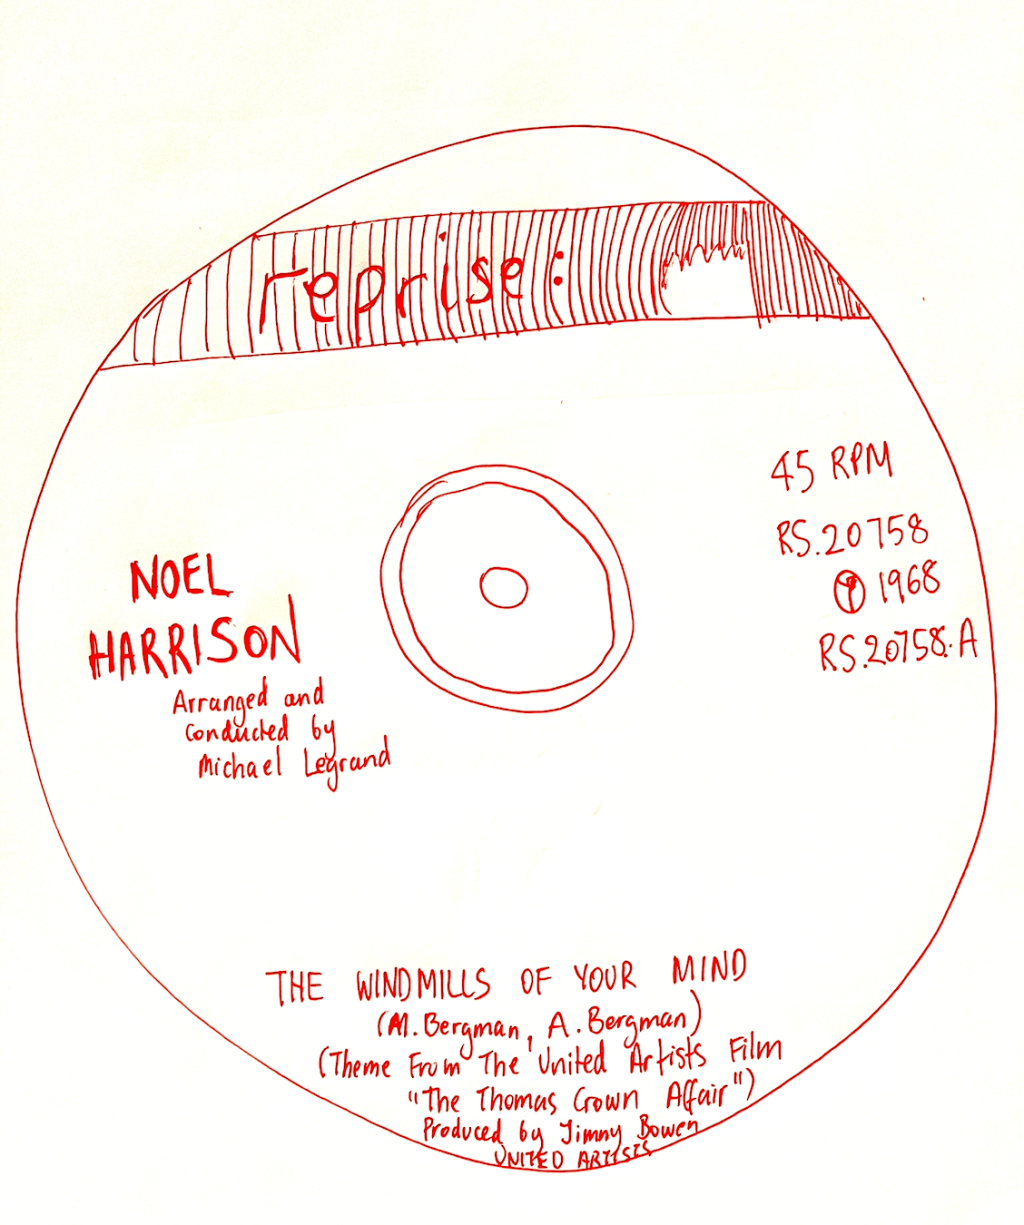 reprise:
45 RPM
RS.20758
Ⓟ 1968
RS.20758.A
NOEL
HARRISON
Arranged and
Conducted by
Michael Legrand
THE WINDMILLS OF YOUR MIND
(M.Bergman, A.Bergman)
(Theme From The United Artists Film
"The Thomas Crown Affair")
Produced by Jimmy Bowen
UNITED ARTISTS